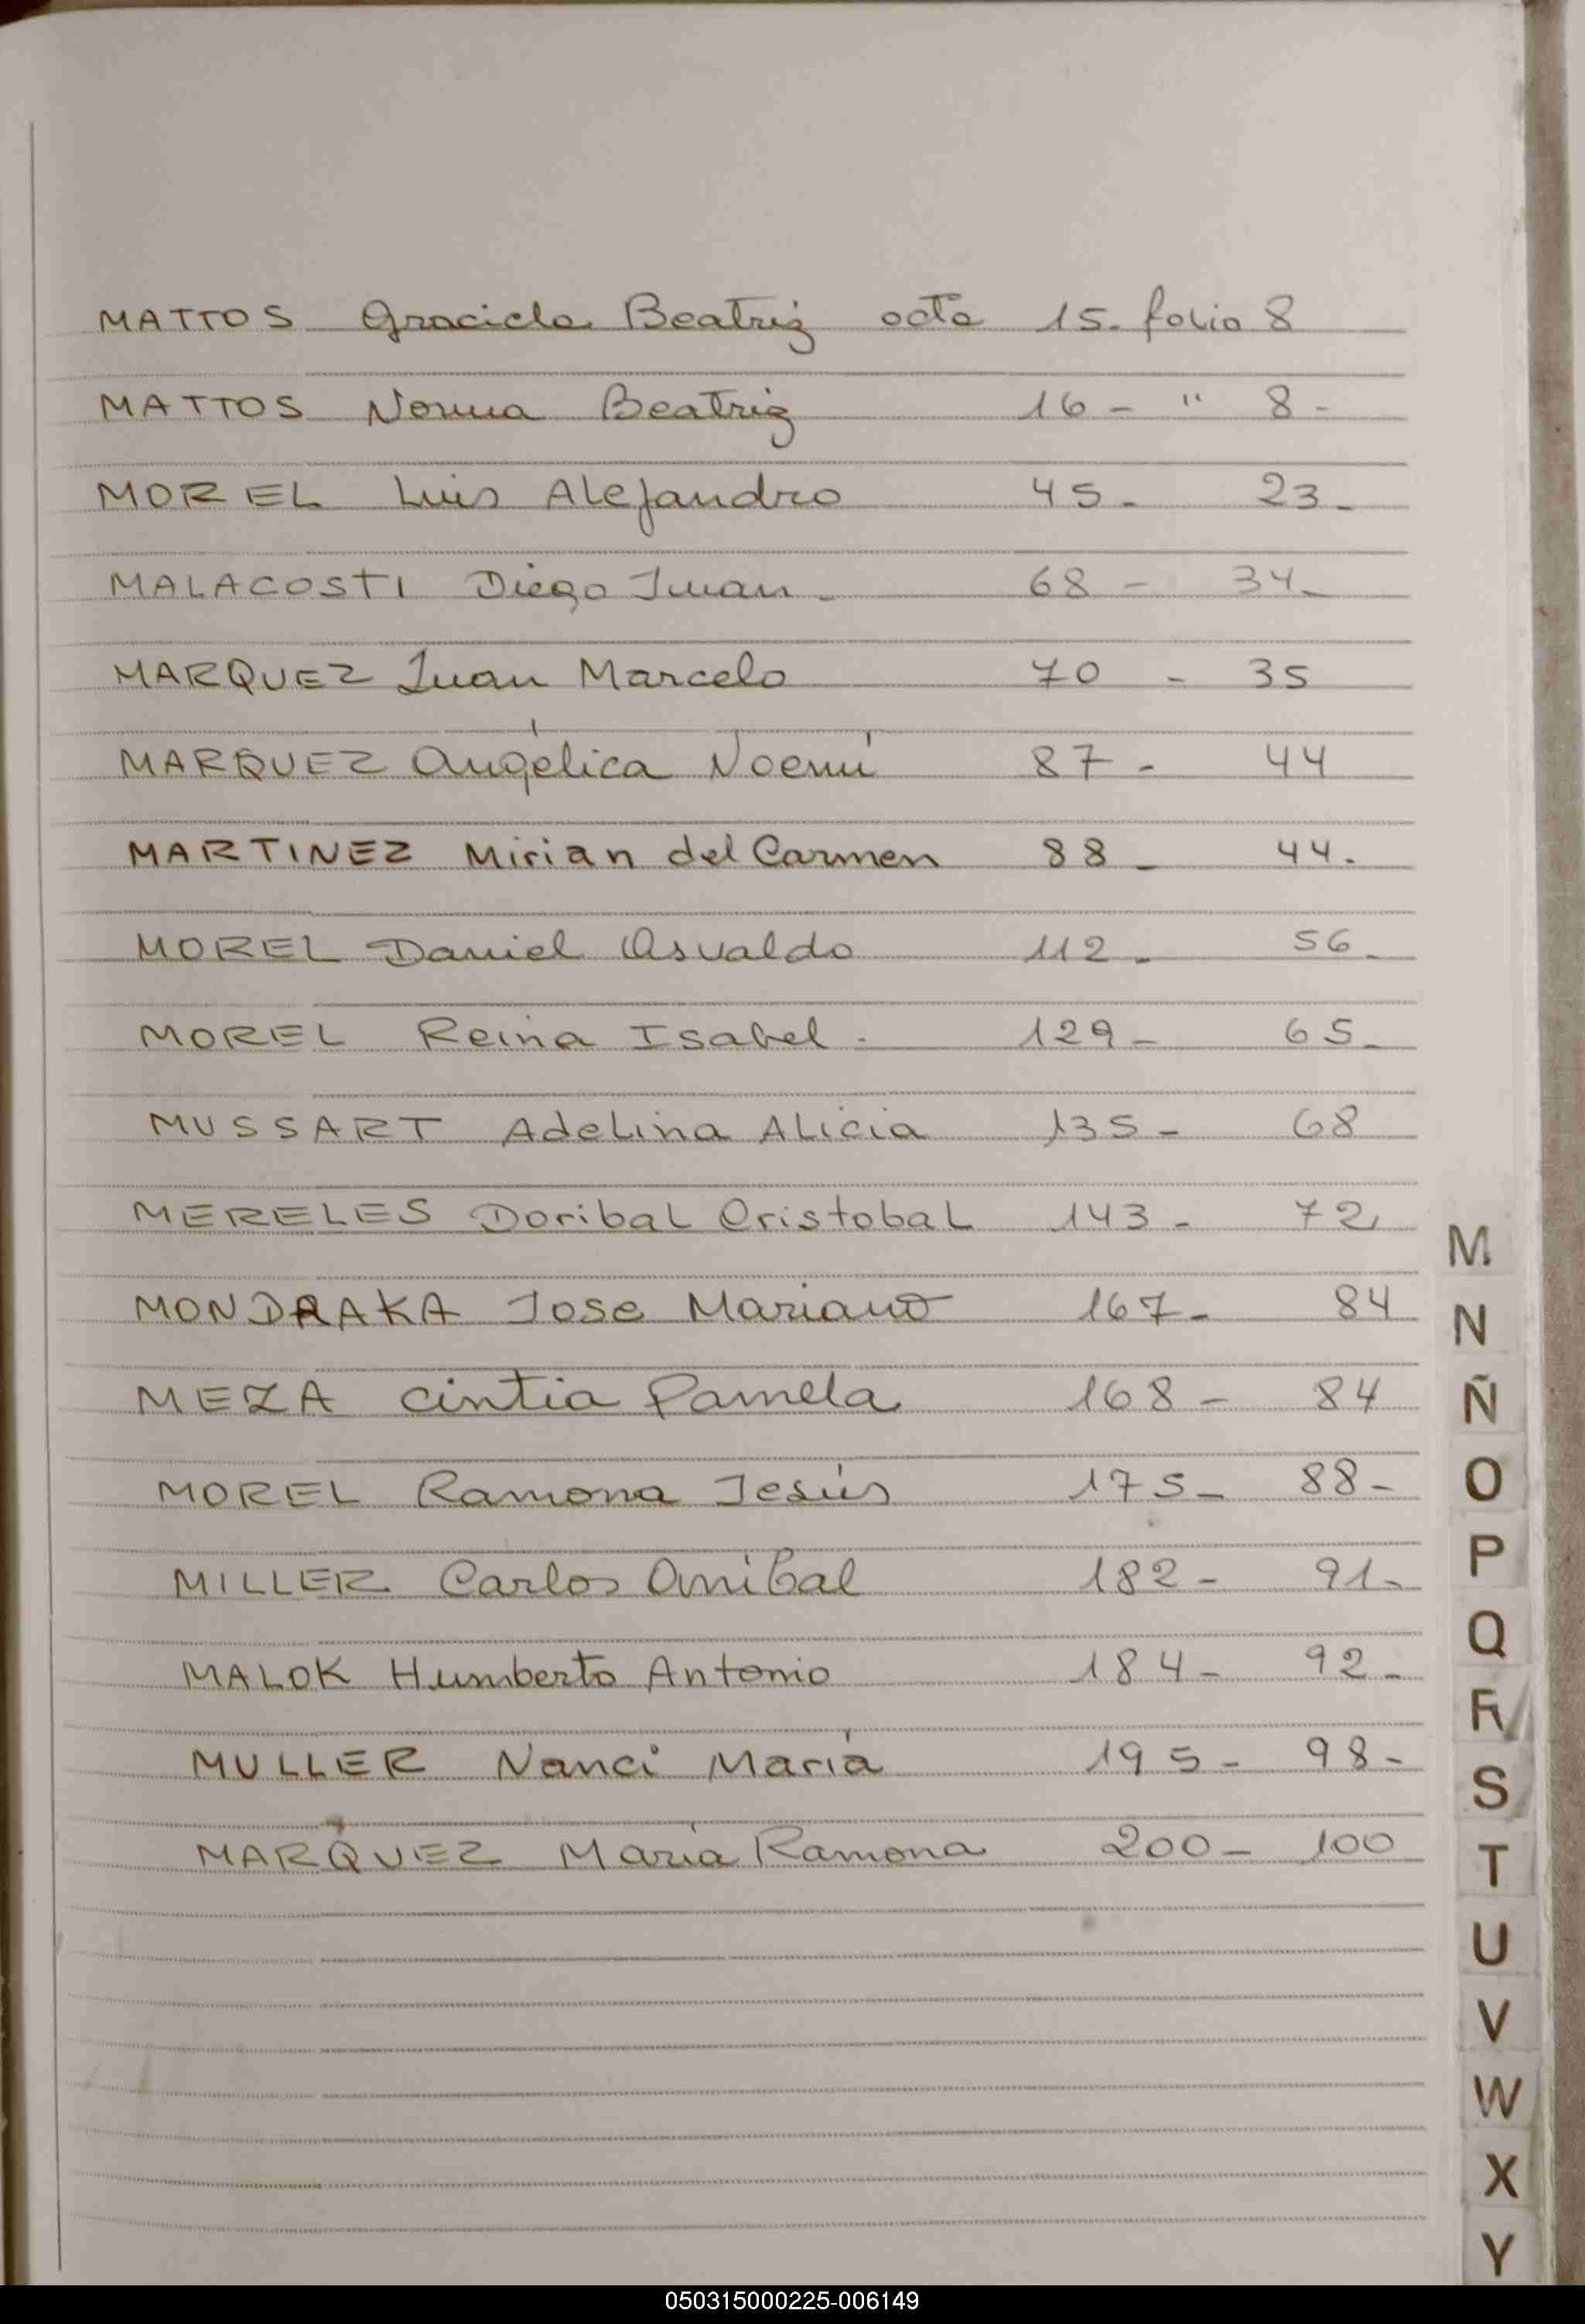 MATTOS Graciela Beatriz acta 15. folio 8
MATTOS Norma Beatriz 16 - " 8 -
MOREL Luis Alejandro 45 - 23 -
MALACOSTI Diego Iwan - 68 - 34 -
MARQUEZ Juan Marcelo 70 - 35
MARQUEZ Angélica Noemí 87 - 44
MARTINEZ Mirian del Carmen 88 - 44.
MOREL Daniel Osvaldo 112 - 56 -
MOREL Reina Isabel - 129 - 65 -
MUSSART Adelina Alicia 135 - 68
MERELES Doribal Cristobal 143 - 72
MONDRAKA Jose Mariano 167 - 84
MEZA Cintia Pamela 168 - 84
MOREL Ramona Jesús 175 - 88 -
MILLER Carlos Anibal 182 - 91 -
MALOK Humberto Antonio 184 - 92 -
MULLER Nanci María 195 - 98 -
MARQUEZ María Ramona 200 - 100
M
N
Ñ
O
P
Q
R
S
T
U
V
W
X
Y
050315000225-006149